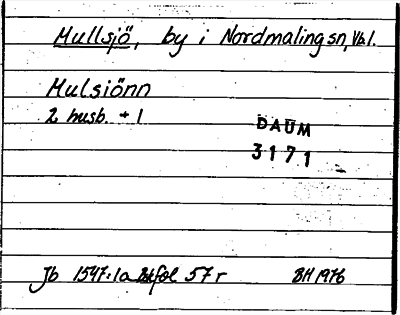 Mullsjö, by i Nordmaling sn, Vb l.
Mulsiönn
2 husb. + 1
DAUM
3171
Jb 1547:1a fol 57 r BH 1976